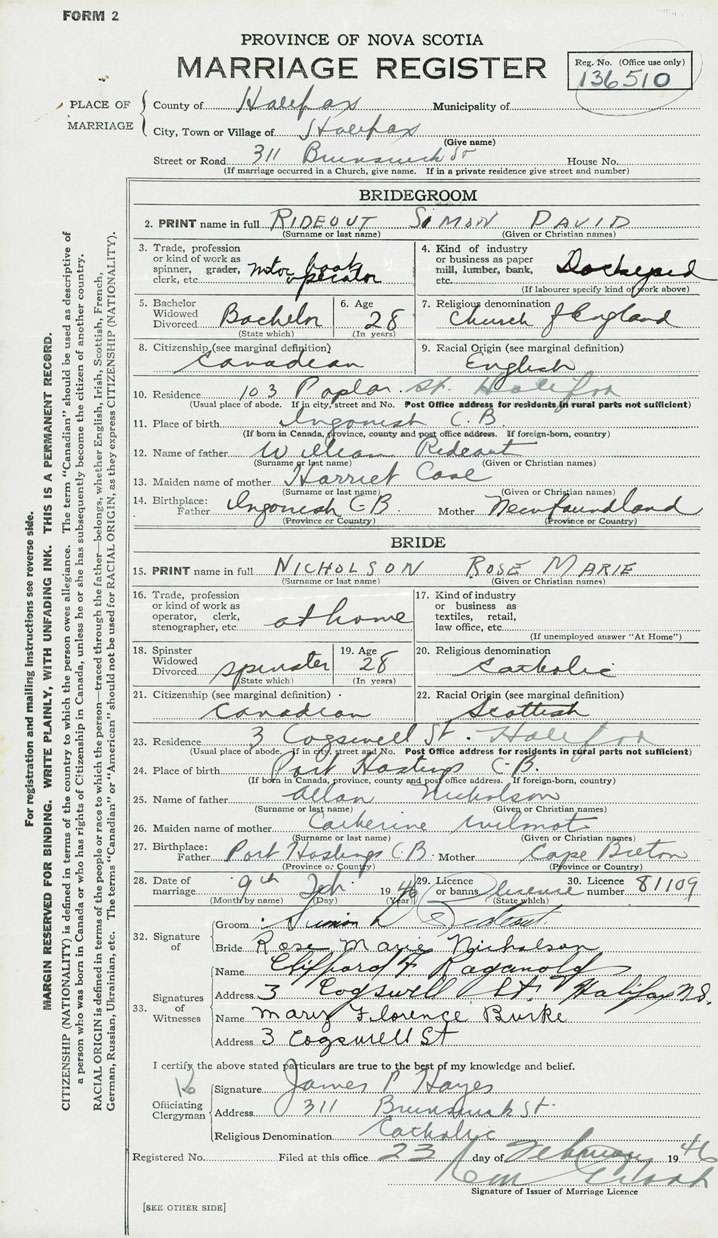 FORM 2
PROVINCE OF NOVA SCOTIA
MARRIAGE REGISTER
Reg. No. (Office use only)
136510
PLACE OF MARRIAGE
County of Halifax Municipality of
City, Town or Village of Halifax
(Give name)
Street or Road 311 Brunswick St House No.
(If marriage occurred in a Church, give name. If in a private residence give street and number)
BRIDEGROOM
2. PRINT name in full RIDEOUT SIMON DAVID
(Surname or last name) (Given or Christian names)
3. Trade, profession or kind of work as spinner, grader, clerk, etc. operator
4. Kind of industry or business as paper mill, lumber, bank, etc. Dockyard
(If labourer specify kind of work above)
5. Bachelor Widowed Divorced Bachelor
(State which)
6. Age 28
(In years)
7. Religious denomination Church of England
8. Citizenship (see marginal definition) Canadian
9. Racial Origin (see marginal definition) English
10. Residence 103 Poplar St. Halifax
(Usual place of abode. If in city, street and No. Post Office address for residents in rural parts not sufficient)
11. Place of birth Ingonish C.B.
(If born in Canada, province, county and post office address. If foreign-born, country)
12. Name of father William Rideout
(Surname or last name) (Given or Christian names)
13. Maiden name of mother Harriet
(Surname or last name) (Given or Christian names)
14. Birthplace: Father Ingonish C B Mother Newfoundland
(Province or Country) (Province or Country)
BRIDE
15. PRINT name in full NICHOLSON ROSE MARIE
(Surname or last name) (Given or Christian names)
16. Trade, profession or kind of work as operator, clerk, stenographer, etc. at home
17. Kind of industry or business as textiles, retail, law office, etc.
(If unemployed answer "At Home")
18. Spinster Widowed Divorced spinster
(State which)
19. Age 28
(In years)
20. Religious denomination Catholic
21. Citizenship (see marginal definition) Canadian
22. Racial Origin (see marginal definition) Scottish
23. Residence 3 Cogswell St. Halifax
(Usual place of abode. If in city, street and No. Post Office address for residents in rural parts not sufficient)
24. Place of birth Port Hastings C.B.
(If born in Canada, province, county and post office address. If foreign-born, country)
25. Name of father Allan Nicholson
(Surname or last name) (Given or Christian names)
26. Maiden name of mother Catherine Wilmot
(Surname or last name) (Given or Christian names)
27. Birthplace: Father Port Hastings C.B. Mother Cape Breton
(Province or Country) (Province or Country)
28. Date of marriage 9th Feb. 1946
(Month by name) (Day) (Year)
29. Licence or banns licence
(State which)
30. Licence number 81109
32. Signature of
Groom Simon D Rideout
Bride Rose Marie Nicholson
33. Signatures of Witnesses
Name Clifford F
Address 3 Cogswell St. Halifax N.S.
Name Mary Florence Burke
Address 3 Cogswell St
I certify the above stated particulars are true to the best of my knowledge and belief.
Officiating Clergyman
Signature James P Hayes
Address 311 Brunswick St.
Religious Denomination Catholic
Registered No. Filed at this office 23 day of February 1946
Signature of Issuer of Marriage Licence
[SEE OTHER SIDE]
For registration and mailing instructions see reverse side.
MARGIN RESERVED FOR BINDING. WRITE PLAINLY, WITH UNFADING INK. THIS IS A PERMANENT RECORD.
CITIZENSHIP (NATIONALITY) is defined in terms of the country to which the person owes allegiance. The term "Canadian" should be used as descriptive of
a person who was born in Canada or who has rights of Citizenship in Canada, unless he or she has subsequently become the citizen of another country.
RACIAL ORIGIN is defined in terms of the people or race to which the person—traced through the father—belongs, whether English, Irish, Scottish, French,
German, Russian, Ukrainian, etc. The terms "Canadian" or "American" should not be used for RACIAL ORIGIN, as they express CITIZENSHIP (NATIONALITY).